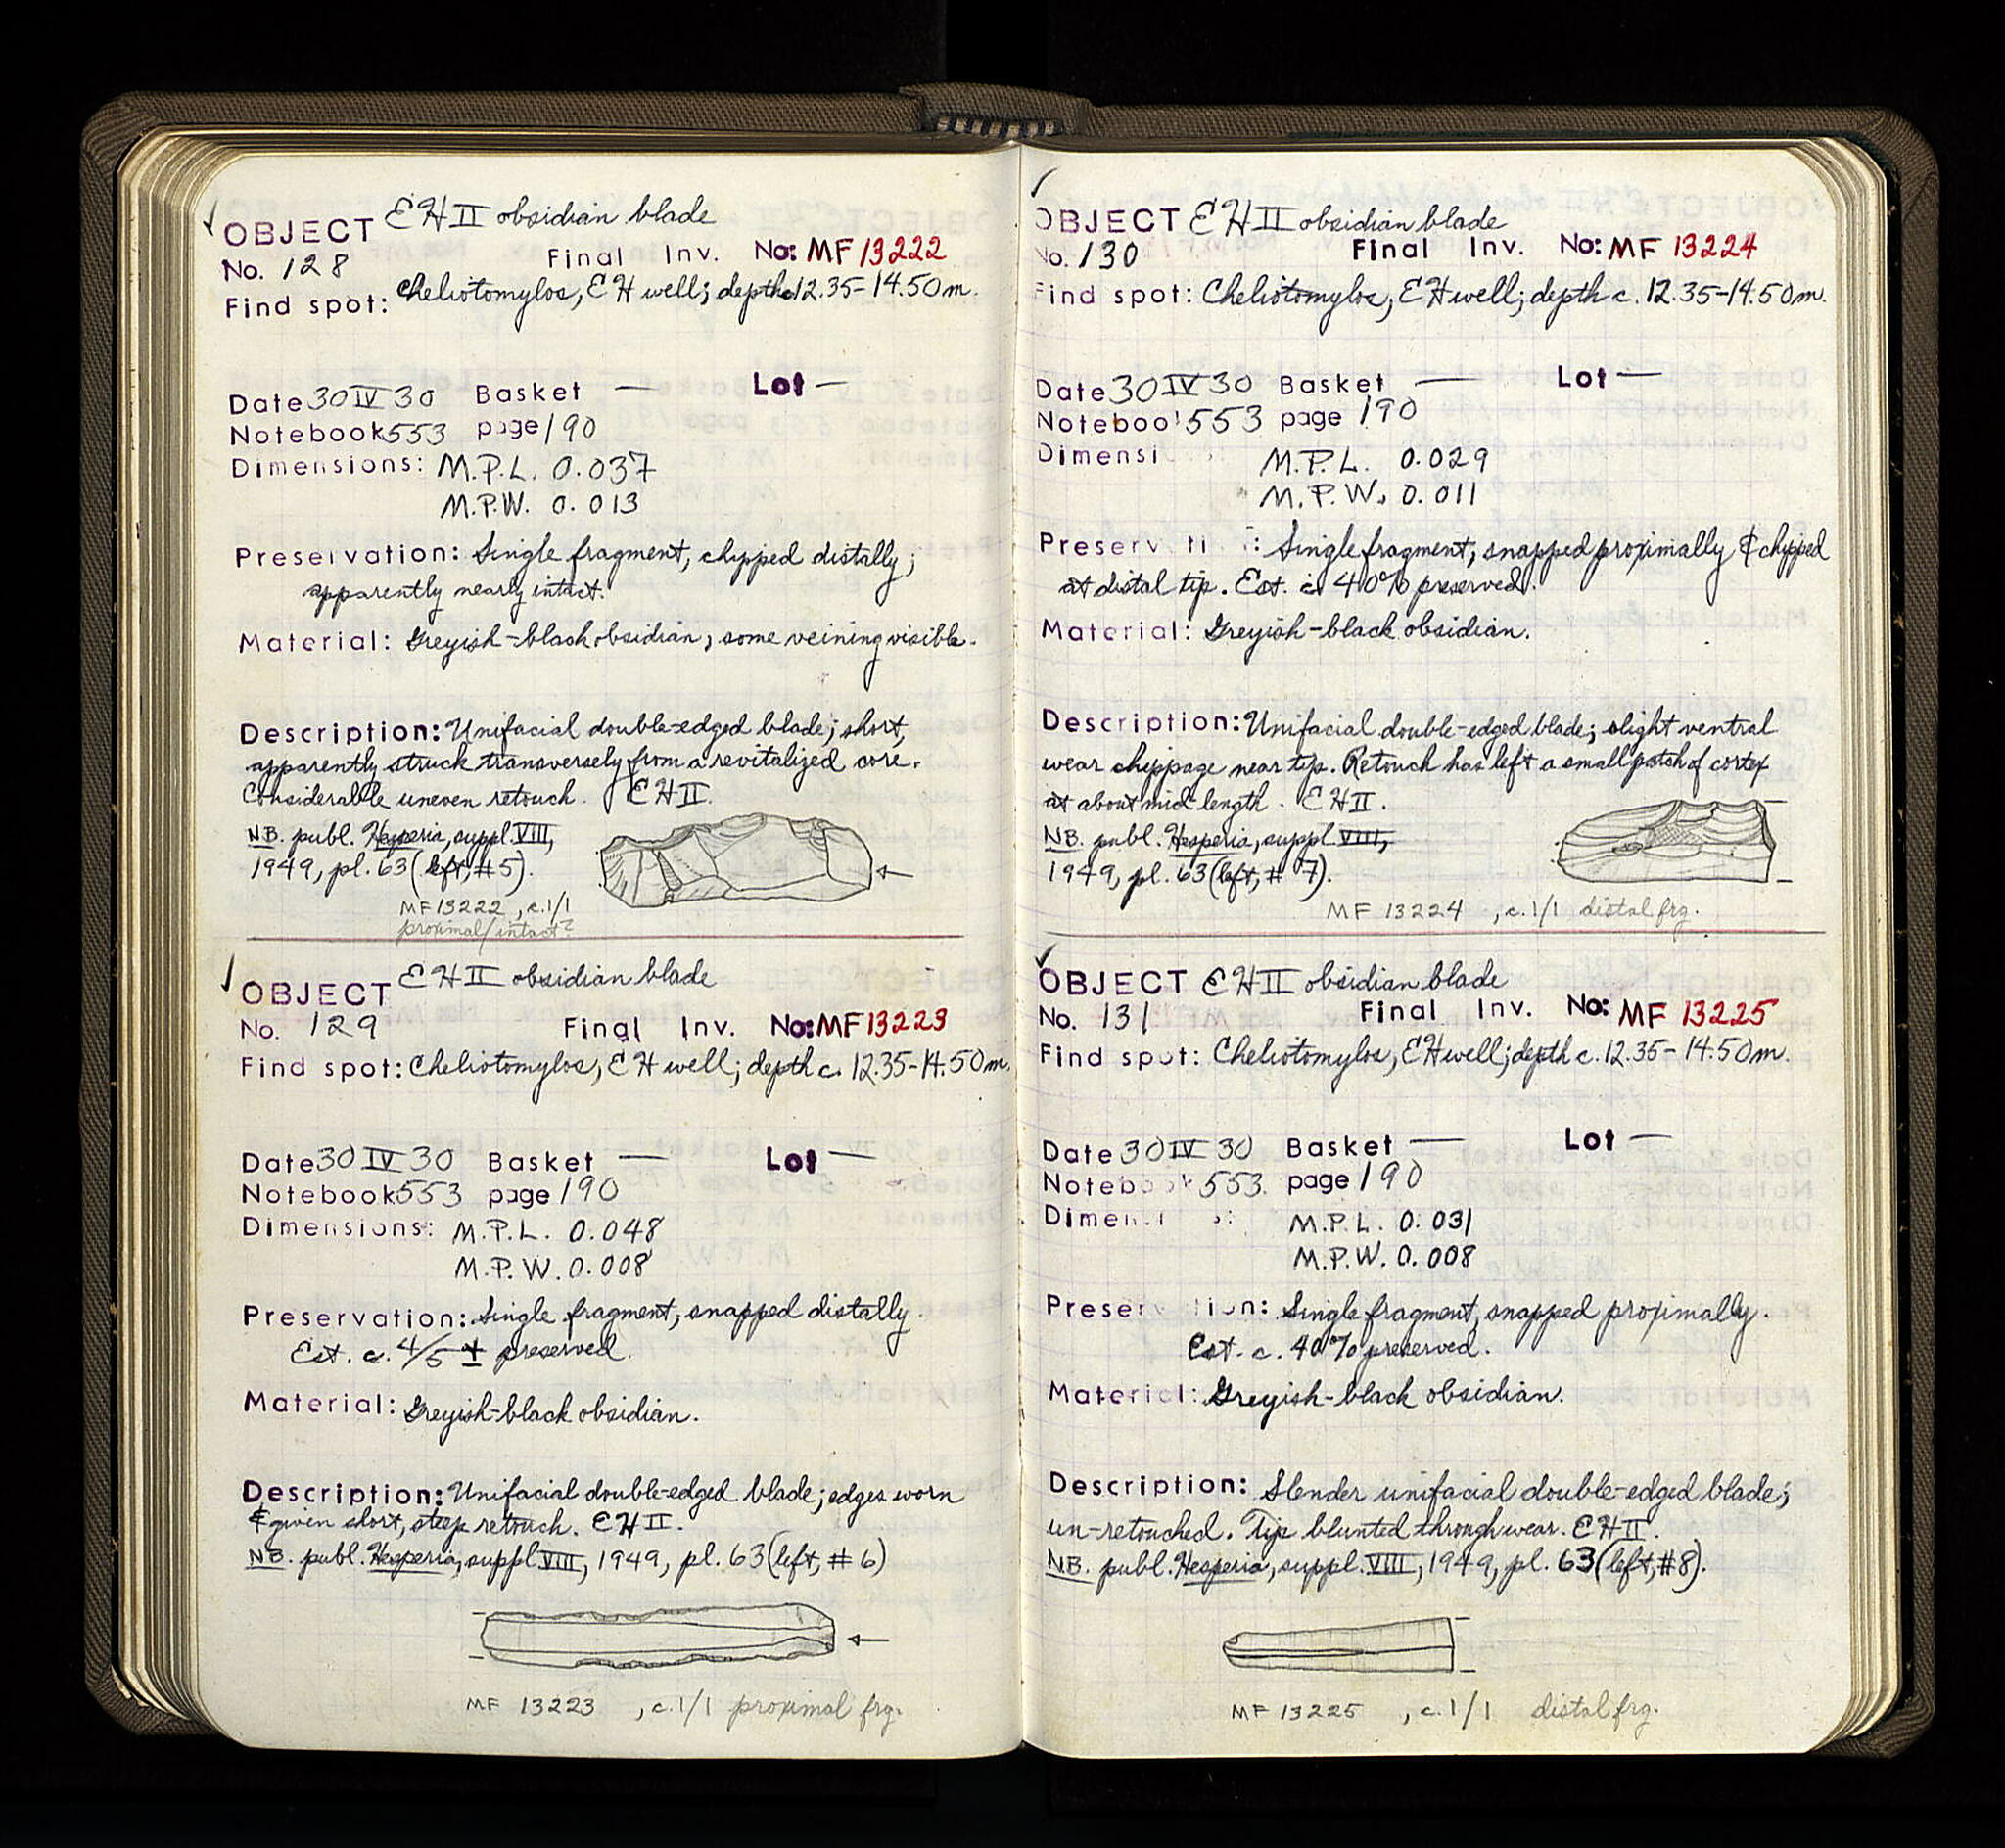 OBJECT EH II obsidian blade
No. 128 Final Inv. No: MF 13222
Find spot: Cheliotomylos, EH well; depth c. 12.35-14.50 m.
Date 30 IV 30 Basket — Lot —
Notebook 553 page 190
Dimensions: M.P.L. 0.037
M.P.W. 0.013
Preservation: Single fragment, chipped distally;
apparently nearly intact.
Material: Greyish-black obsidian, some veining visible.
Description: Unifacial double-edged blade; short,
apparently struck transversely from a revitalized core.
Considerable uneven retouch. EH II.
NB. publ. Hesperia, suppl. VIII,
1949, pl. 63 (left, #5).
MF 13222, c. 1/1
proximal/intact?
OBJECT EH II obsidian blade
No. 129 Final Inv. No: MF 13223
Find spot: Cheliotomylos, EH well; depth c. 12.35-14.50 m.
Date 30 IV 30 Basket — Lot —
Notebook 553 page 190
Dimensions: M.P.L. 0.048
M.P.W. 0.008
Preservation: Single fragment, snapped distally.
Est. c. 4/5 ± preserved.
Material: Greyish-black obsidian.
Description: Unifacial double-edged blade; edges worn
& given short, steep retouch. EH II.
NB. publ. Hesperia, suppl. VIII, 1949, pl. 63 (left, #6)
MF 13223, c. 1/1 proximal frg.
OBJECT EH II obsidian blade
No. 130 Final Inv. No: MF 13224
Find spot: Cheliotomylos, EH well; depth c. 12.35-14.50 m.
Date 30 IV 30 Basket — Lot —
Notebook 553 page 190
Dimensi M.P.L. 0.029
M.P.W. 0.011
Preserv ti : Single fragment, snapped proximally & chipped
at distal tip. Est. c. 40% preserved.
Material: Greyish-black obsidian.
Description: Unifacial double-edged blade; slight ventral
wear chippage near tip. Retouch has left a small patch of cortex
at about mid-length. EH II.
NB. publ. Hesperia, suppl. VIII,
1949, pl. 63 (left, #7).
MF 13224, c. 1/1 distal frg.
OBJECT EH II obsidian blade
No. 131 Final Inv. No: MF 13225
Find spot: Cheliotomylos, EH well; depth c. 12.35-14.50 m.
Date 30 IV 30 Basket — Lot —
Notebook 553 page 190
Dimensi : M.P.L. 0.031
M.P.W. 0.008
Preser ion: Single fragment, snapped proximally.
Est. c. 40% preserved.
Material: Greyish-black obsidian.
Description: Slender unifacial double-edged blade;
un-retouched. Tip blunted through wear. EH II.
NB. publ. Hesperia, suppl. VIII, 1949, pl. 63 (left, #8).
MF 13225, c. 1/1 distal frg.